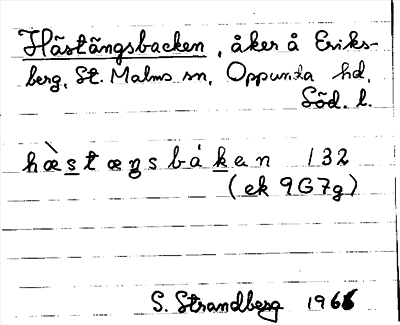 Hästängsbacken, åker å Eriks-
berg, St. Malms sn, Oppunda hd,
Söd. l.
hæ̀stæŋsbákan 132
(ek 9G7g)
S. Strandberg 1966